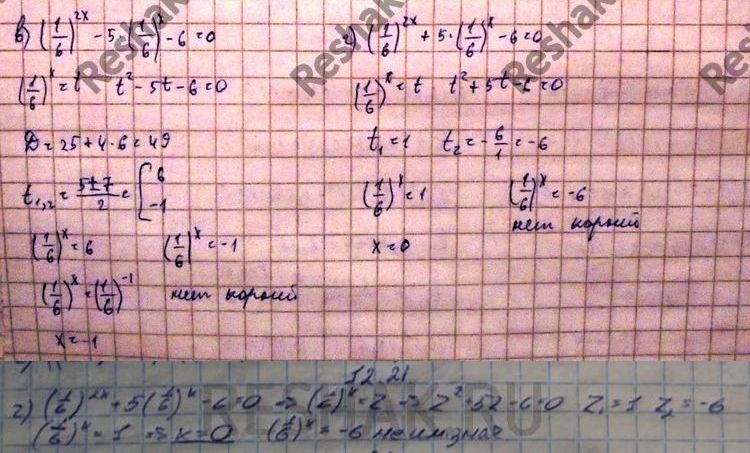 в) (1/6)^2x - 5·(1/6)^x - 6 = 0
(1/6)^x = t t² - 5t - 6 = 0
D = 25 + 4·6 = 49
t₁,₂ = (5±7)/2 = [6 -1
(1/6)^x = 6 (1/6)^x = -1
(1/6)^x = (1/6)^-1 нет корней
x = -1
г) (1/6)^2x + 5·(1/6)^x - 6 = 0
(1/6)^x = t t² + 5t - 6 = 0
t₁ = 1 t₂ = -6/1 = -6
(1/6)^x = 1 (1/6)^x = -6
x = 0 нет корней
Reshak
Reshak
Reshak
Reshak
12.21
г) (1/6)^2x + 5(1/6)^x - 6 = 0 => (1/6)^x = z => z² + 5z - 6 = 0 z₁ = 1 z₂ = -6
(1/6)^x = 1 => x = 0 (1/6)^x = -6 не им знач.
RESHAK.RU